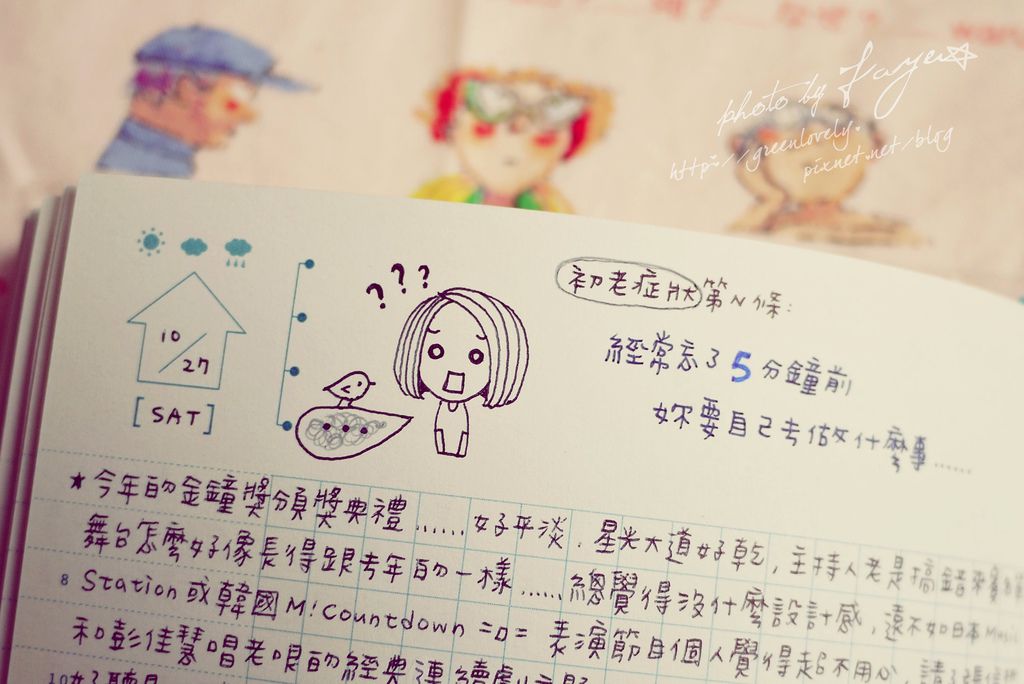 photo by Faye
http://greenlovely.
pixnet.net/blog
10/27
[SAT]
???
初老症狀第N條:
經常忘了5分鐘前
妳要自己去做什麼事......
★今年的金鐘獎頒獎典禮......好平淡.星光大道好乾,主持人老是搞錯來賓
舞台怎麼好像長得跟去年的一樣......總覺得沒什麼設計感,遠不如日本Music
8 Station或韓國M!Countdown =口= 表演節目個人覺得超不用心,請了張信哲
和彭佳慧唱老哏的經典連續劇主題
10